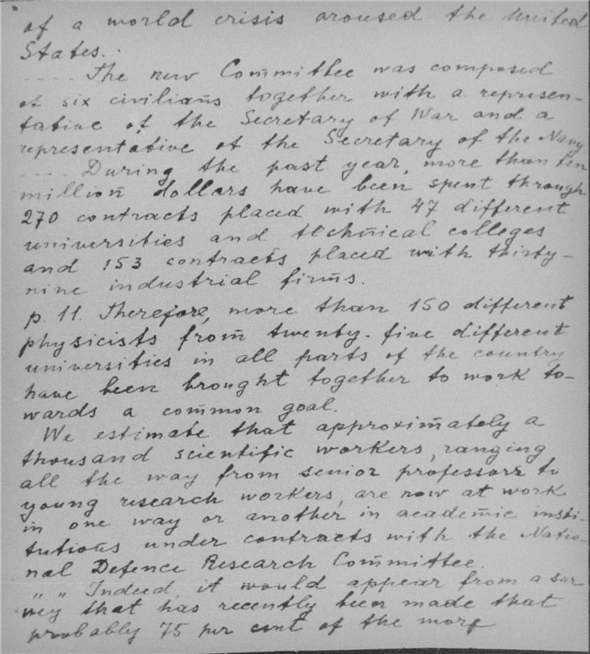 of a world crisis aroused the United
States..
.... The new Committee was composed
of six civilians together with a represen-
tative of the Secretary of War and a
representative of the Secretary of the Navy
.... During the past year, more than ten
million dollars have been spent through
270 contracts placed with 47 different
universities and technical colleges
and 153 contracts placed with thirty-
nine industrial firms.
p. 11. Therefore, more than 150 different
physicists from twenty-five different
universities in all parts of the country
have been brought together to work to-
wards a common goal.
We estimate that approximately a
thousand scientific workers, ranging
all the way from senior professors to
young research workers, are now at work
in one way or another in academic insti-
tutions under contracts with the Natio-
nal Defence Research Committee.
" " Indeed, it would appear from a sur
vey that has recently been made that
probably 75 per cent of the more